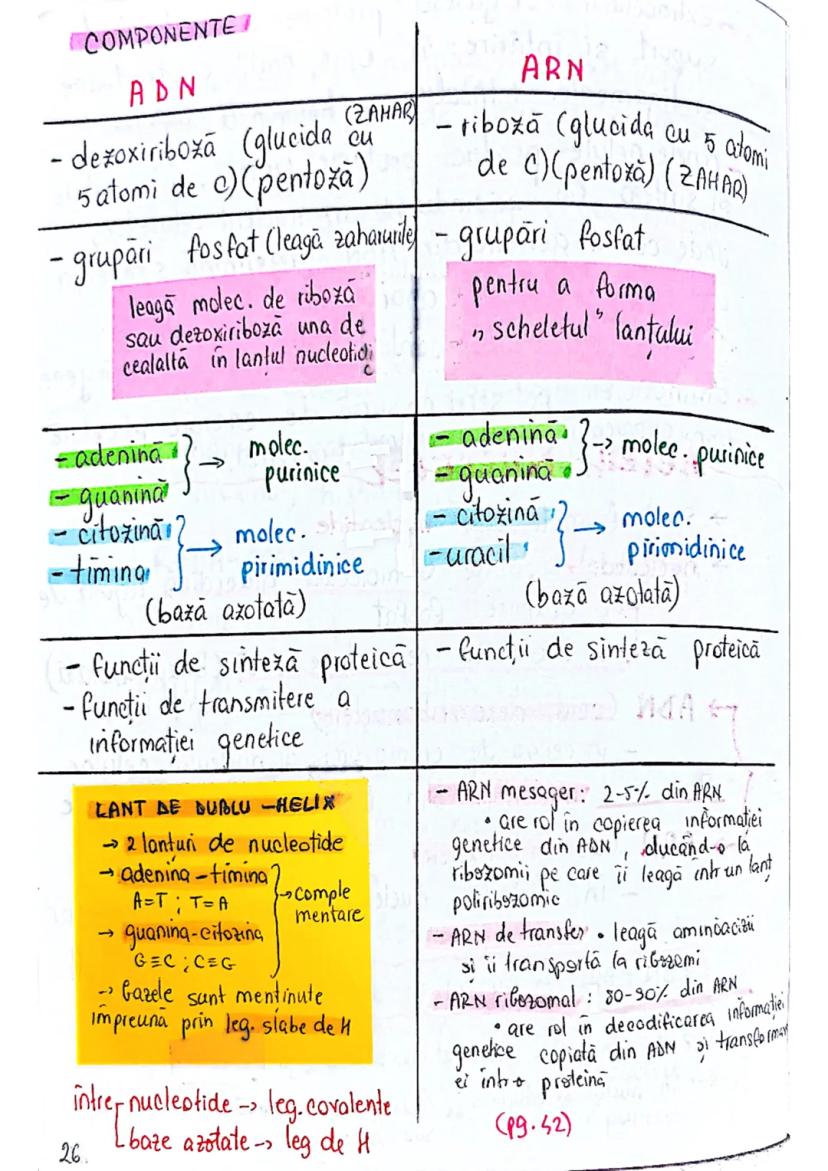 COMPONENTE
ADN
- dezoxiriboză (glucida cu (ZAHAR)
5 atomi de C)(pentoză)
- grupări fosfat (leagă zaharurile)
leagă molec. de riboză
sau dezoxiriboză una de
cealaltă în lanțul nucleotidic
- adenină
- guanină
→ molec.
purinice
- citozină
- timina
→ molec.
pirimidinice
(bază azotată)
- funcții de sinteză proteică
- funcții de transmitere a
informației genetice
LANT DE DUBLU -HELIX
→ 2 lanturi de nucleotide
→ adenina - timina
A=T ; T=A
→ guanina-citozina
G≡C ; C≡G
→ comple
mentare
-> bazele sunt menținute
împreună prin leg. slabe de H
între nucleotide -> leg. covalente
baze azotate -> leg de H
26.
ARN
- riboză (glucida cu 5 atomi
de C)(pentoză) (ZAHĂR)
- grupări fosfat
pentru a forma
„scheletul" lanțului
- adenină
- guanină
-> molec. purinice
- citozină
- uracil
→ molec.
pirimidinice
(bază azotată)
- funcții de sinteză proteică
- ARN mesager: 2-5% din ARN
• are rol în copierea informației
genetice din ADN, ducând-o la
ribozomii pe care îi leagă într un lanț
poliribozomic
- ARN de transfer • leagă aminoacizii
și îi transportă la ribozomi
- ARN ribozomal : 80-90% din ARN
• are rol în decodificarea informației
genetice copiată din ADN și transformar
ei într-o proteină
(pg.42)